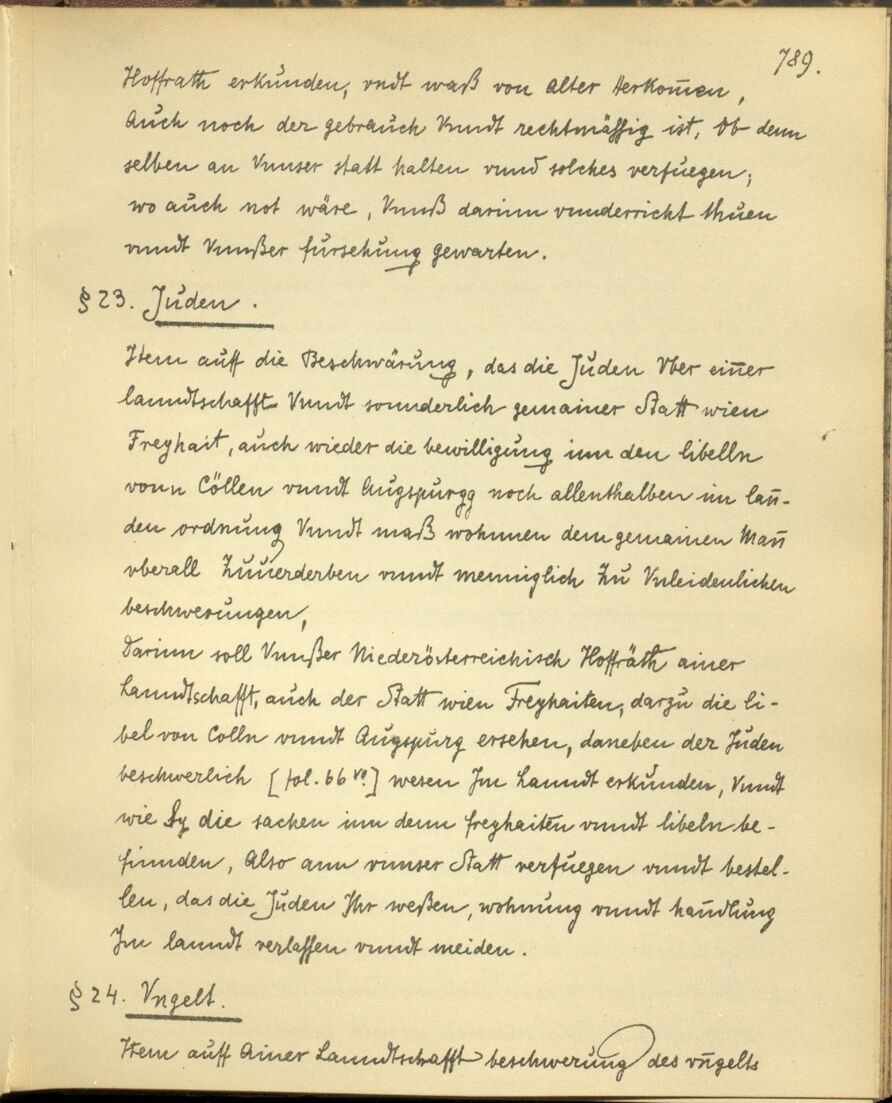 789.
Hoffrath erkunden, vndt waß von alter Herkom̄en,
Auch noch der gebrauch Vnndt rechtmässig ist, Ob denn
selben an Vnnser statt halten vnnd solches verfuegen;
wo auch not wäre, Vnnß darinn vnnderricht thuen
vnndt Vnnßer fursehung gewarten.
§ 23. Juden.
Item auff die Beschwärung, das die Juden Vber ein̄er
lanndtschafft Vnndt sonnderlich gemainer Statt wien
Freyhait, auch wieder die bewilligung inn den libelln
vonn Cöllen vnndt Augspurgg noch allenthalben im lan̄-
den ordnung Vnndt maß wohnnen dem gemainen Man̄
vberall Zuuerderben vnndt menniglich Zu Vnleidenlichen
beschwerungen,
Darinn soll Vnnßer Niederösterreichisch Hoffräth ainer
Lanndtschafft, auch der Statt wien Freyhaiten, darzu die li-
bel von Colln vnndt Augspurg ersehen, daneben der Juden
beschwerlich [fol. 66 vo.] wesen Im Lanndt erkunden, Vnndt
wie Sy die sachen inn denn freyhaiten vnndt libeln be-
finnden, Also ann vnnser Statt verfuegen vnndt bestel-
len, das die Juden Ihr weßen, wohnung vnndt handlung
Im lanndt verlassen vnndt meiden.
§ 24. Vngelt.
Item auff Ainer Lanndtschafft beschwerung des vn̄gelts